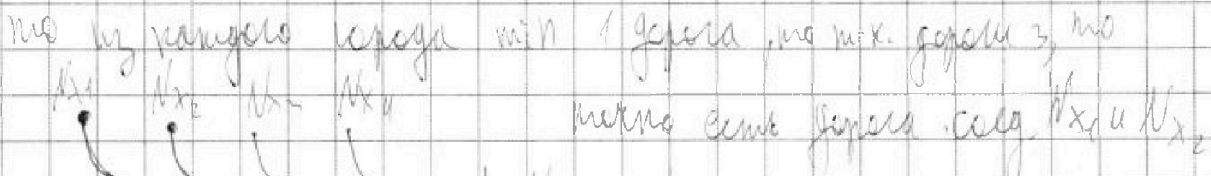 то из каждого города min 1 дорога, но т.к. дорог 3, то
Nx₁ Nx₂ Nx₃ Nx₄ точно есть дорога соед. Nx₁ и Nx₂